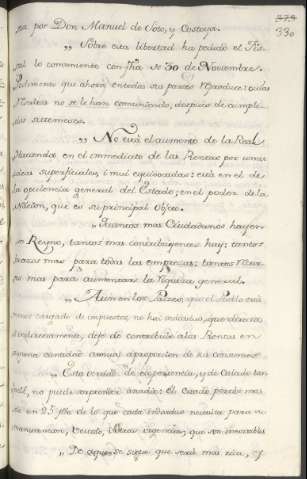 379
330
por Don Manuel de Soso, y Costoya.
" Sobre esta libertad ha pedido el Fis-
cal lo conveniente con fha de 30 de Noviembre.
Pedimento que ahora entodas sus partes Reproduce:
no se le han comunicado, despues de
" No está el aumento de la Real
Hacienda en el immediato de las Rentas por
superficiales, i mui equivocadas: está en el de
la opulencia general del Estado; en el poder de la
Nacion, que es su principal Objeto.
" Quantos mas Ciudadanos haya en
Reyno, tantos mas contribuyentes hay: tantos
mas para todas las empresas: tantos
mas para aumentar la riqueza general.
" Aun en los Paises, que el Pueblo está
menos cargado de impuestos no hai individuo, que directa
ò indirectamente, deje de contribuir a las Rentas en
cantidad annua à proporcion de sus consumos
" Esta verdad es de experiencia, y de calculo tan
facil, no puede sorprender à nadie: el Erario percibe mas
de un 25 de lo que cada individuo necesita para su
manutencion, Vestido, que son
" De aqui se sigue que será mas rica, y